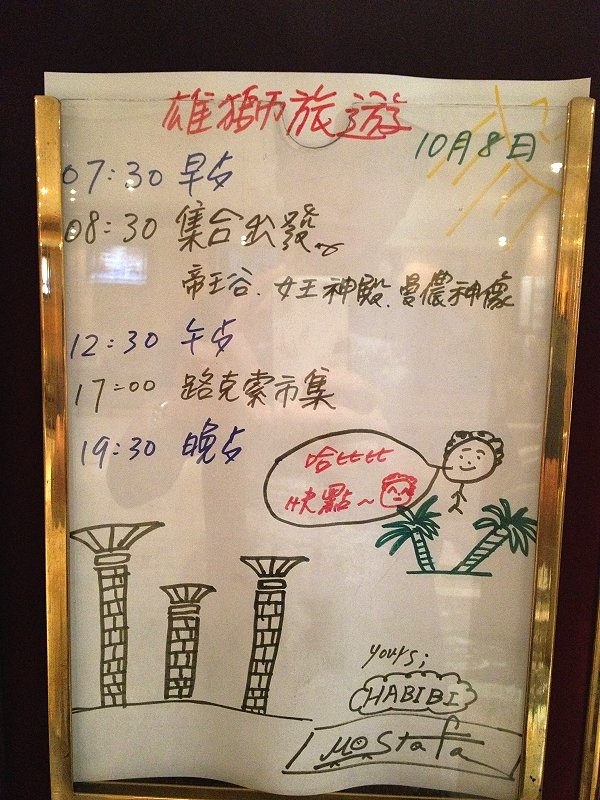 雄獅旅遊
10月8日
07:30 早歺
08:30 集合出發~
帝王谷.女王神殿.曼儂神像
12:30 午歺
17:00 路克索市集
19:30 晚歺
哈比比
快點~
yours;
HABIBI
Mostafa